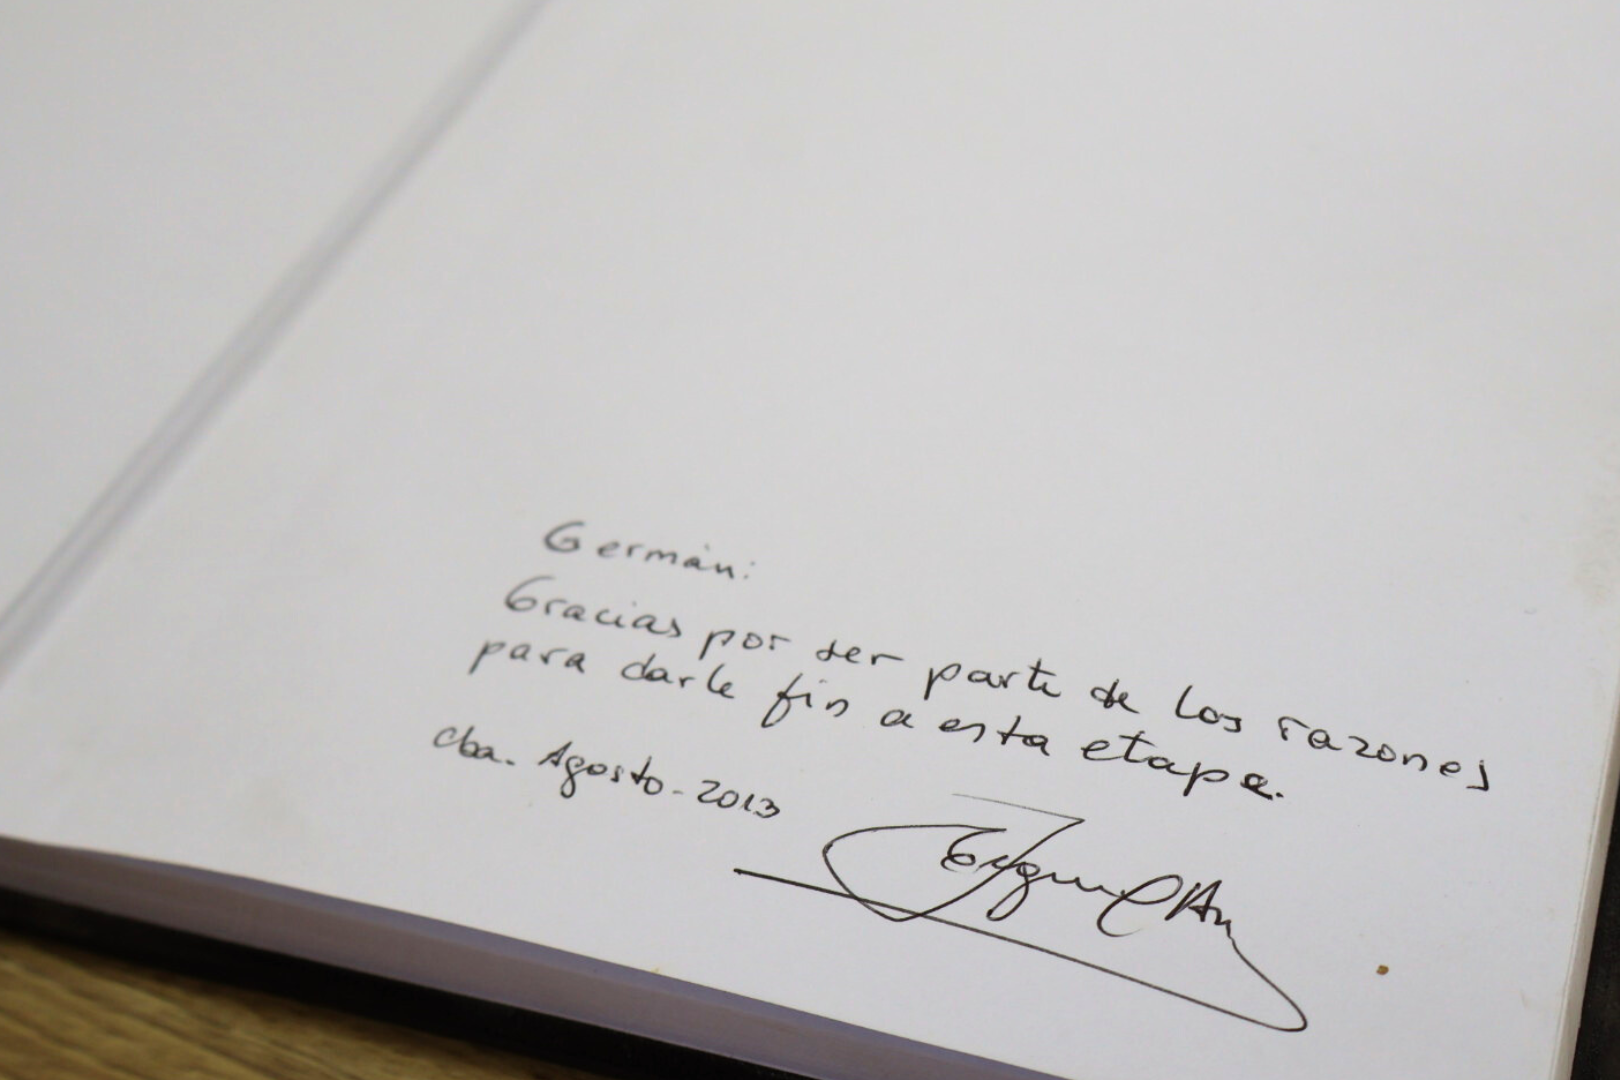 Germán:
Gracias por ser parte de los razones
para darle fin a esta etapa.
Cba. Agosto-2013